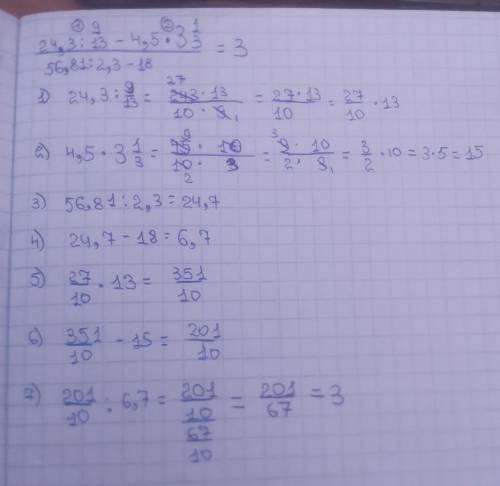 ① 9/13 ② 1/3
(24,3 : 9/13 − 4,5 · 3 1/3) / (56,81 : 2,3 − 18) = 3
1) 24,3 : 9/13 = (243 27 · 13) / (10 · 9 1) = (27 · 13) / 10 = 27/10 · 13
2) 4,5 · 3 1/3 = (45 9 · 10) / (10 2 · 3) = (9 3 · 10) / (2 · 3 1) = 3/2 · 10 = 3 · 5 = 15
3) 56,81 : 2,3 = 24,7
4) 24,7 − 18 = 6,7
5) 27/10 · 13 = 351/10
6) 351/10 − 15 = 201/10
7) 201/10 : 6,7 = (201/10) / (67/10) = 201/67 = 3